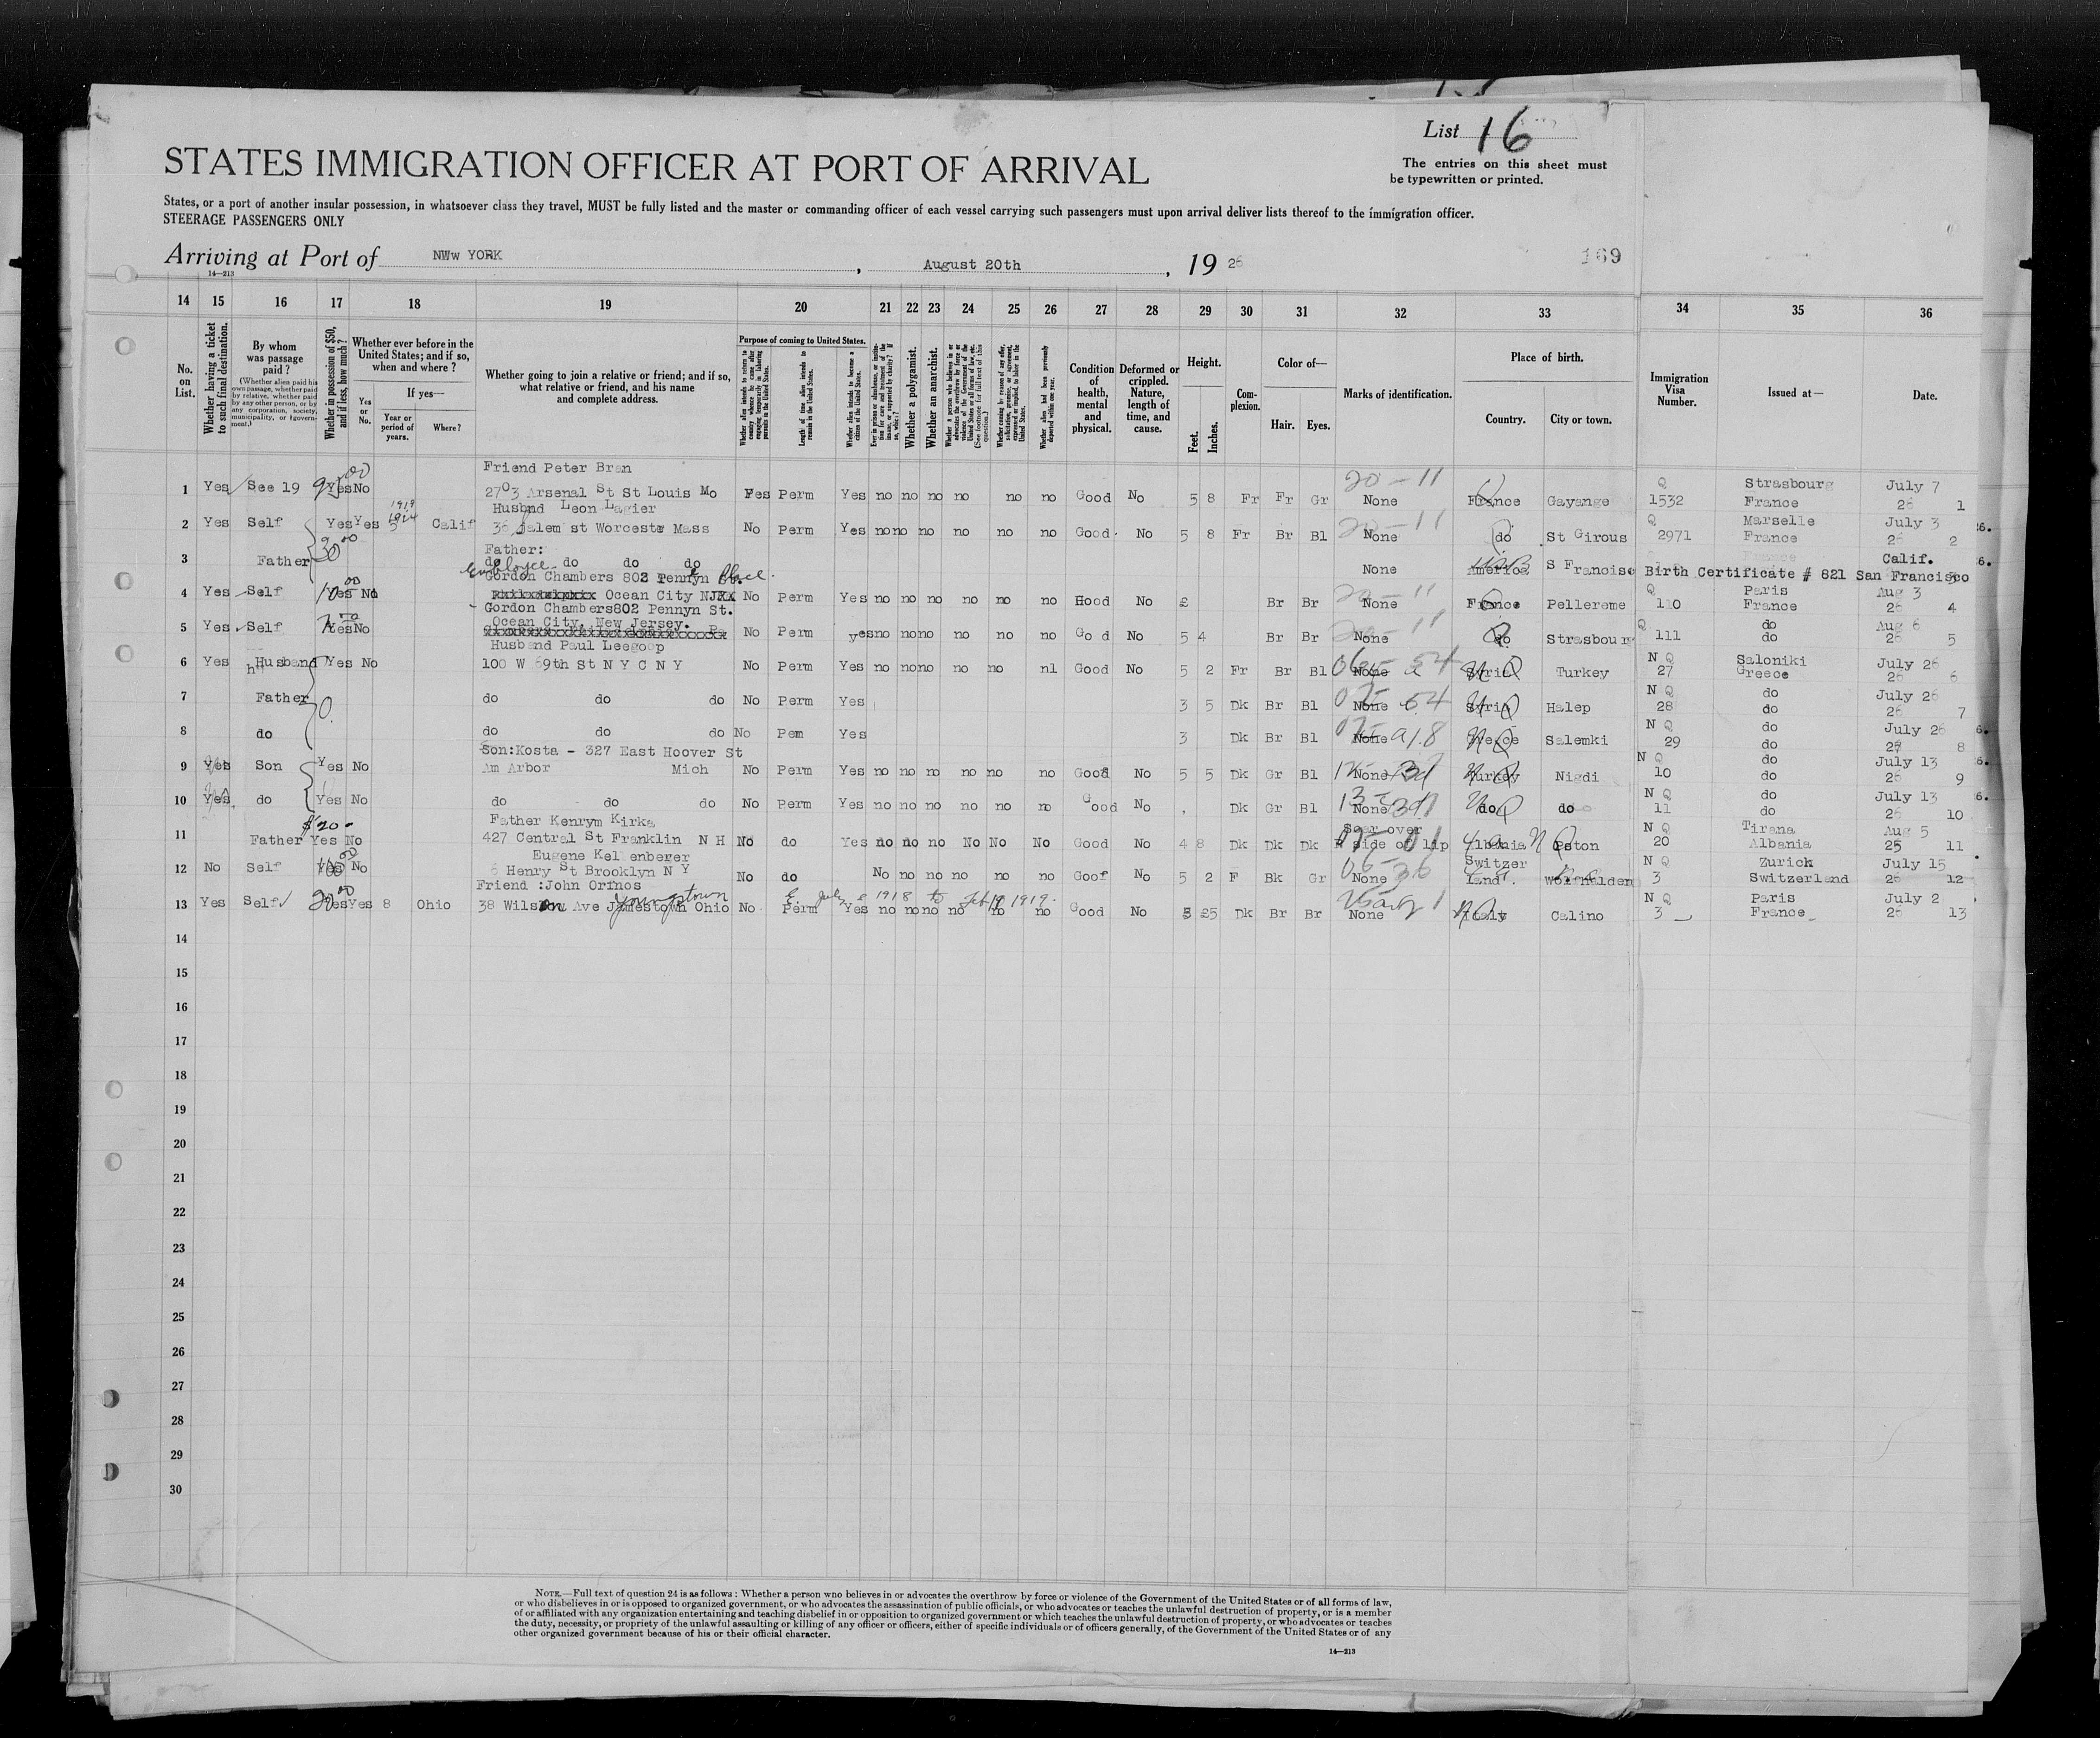 List 16
STATES IMMIGRATION OFFICER AT PORT OF ARRIVAL
The entries on this sheet must
be typewritten or printed.
States, or a port of another insular possession, in whatsoever class they travel, MUST be fully listed and the master or commanding officer of each vessel carrying such passengers must upon arrival deliver lists thereof to the immigration officer.
STEERAGE PASSENGERS ONLY
Arriving at Port of NWw YORK , August 20th , 19 26
169
14—213
14 15 16 17 18 19 20 21 22 23 24 25 26 27 28 29 30 31 32 33 34 35 36
No. on List.
Whether having a ticket to such final destination.
By whom was passage paid?
(Whether alien paid his own passage, whether paid by relative, whether paid by any other person, or by any corporation, society, municipality, or government.)
Whether in possession of $50, and if less, how much?
Whether ever before in the United States; and if so, when and where?
Yes or No.
If yes—
Year or period of years.
Where?
Whether going to join a relative or friend; and if so, what relative or friend, and his name and complete address.
Purpose of coming to United States.
Whether alien intends to return to country whence he came after engaging temporarily in laboring pursuits in the United States.
Length of time alien intends to remain in the United States.
Whether alien intends to become a citizen of the United States.
Whether a polygamist.
Whether an anarchist.
Condition of health, mental and physical.
Deformed or crippled. Nature, length of time, and cause.
Height.
Feet.
Inches.
Complexion.
Color of—
Hair.
Eyes.
Marks of identification.
Place of birth.
Country.
City or town.
Immigration Visa Number.
Issued at—
Date.
Friend Peter Bran
1 Yes See 19 Yes No 2703 Arsenal St St Louis Mo Yes Perm Yes no no no no no no Good No 5 8 Fr Fr Gr 20-11 None France Gayange Q 1532 Strasbourg France July 7 26 1
Husbnd Leon Lagier
2 Yes Self Yes Yes 5 Calif 36 Salem st Worceste Mass No Perm Yes no no no no no no Good No 5 8 Fr Br Bl 20-11 None do St Girous Q 2971 Marselle France July 3 26 2
Father:
3 Father do do do do None America S Francisc Birth Certificate # 821 San Francisco Calif.
employee
Gordon Chambers 802 Pennyn Place.
4 Yes Self Yes No Ocean City NJ No Perm Yes no no no no no no Hood No Br Br 20-11 None France Pellereme Q 110 Paris France Aug 3 26 4
Gordon Chambers802 Pennyn St.
Ocean City, New Jersey.
5 Yes Self Yes No No Perm yes no no no no no no Go d No 5 4 Br Br None do Strasbourg Q 111 do do Aug 6 26 5
Husband Paul Leegoop
6 Yes Husband Yes No 100 W 69th St N Y C N Y No Perm Yes no no no no no nl Good No 5 2 Fr Br Bl None Syria Turkey N Q 27 Saloniki Greece July 26 26 6
7 Father do do do No Perm Yes 3 5 Dk Br Bl None Syria Halep N Q 28 do do July 26 26 7
8 do do do do No Pem Yes 3 Dk Br Bl None Greece Salemki N Q 29 do do July 26 8
Son:Kosta - 327 East Hoover St
9 Yes Son Yes No Am Arbor Mich No Perm Yes no no no no no no Good No 5 5 Dk Gr Bl None Turkey Nigdi N Q 10 do do July 13 26 9
10 Yes do Yes No do do do No Perm Yes no no no no no no Good No Dk Gr Bl None do do N Q 11 do do July 13 26 10
Father Kenrym Kirka
11 Father $20- Yes No 427 Central St Franklin N H No do Yes no no no No No No Good No 4 8 Dk Dk Dk Scar over R side of lip Albania Q 20 Tirana Albania Aug 5 25 11
Eugene Kellenberer
12 No Self Yes No 6 Henry St Brooklyn N Y No do No no no no no no no Goof No 5 2 F Bk Gr None Switzer land. Wolfhalden N Q 3 Zurich Switzerland July 15 26 12
Friend :John Orfnos
Youngstown
July 1918 to Feb 1919
13 Yes Self Yes Yes 8 Ohio 38 Wilson Ave Jamestown Ohio No Perm Yes no no no no no no Good No 5 Dk Br Br None Italy Calino N Q 3 Paris France July 2 26 13
14
15
16
17
18
19
20
21
22
23
24
25
26
27
28
29
30
NOTE.—Full text of question 24 is as follows: Whether a person who believes in or advocates the overthrow by force or violence of the Government of the United States or of all forms of law,
or who disbelieves in or is opposed to organized government, or who advocates the assassination of public officials, or who advocates or teaches the unlawful destruction of property, or is a member
of or affiliated with any organization entertaining and teaching disbelief in or opposition to organized government or which teaches the unlawful destruction of property, or who advocates or teaches
the duty, necessity, or propriety of the unlawful assaulting or killing of any officer or officers, either of specific individuals or of officers generally, of the Government of the United States or of any
other organized government because of his or their official character.
14—213